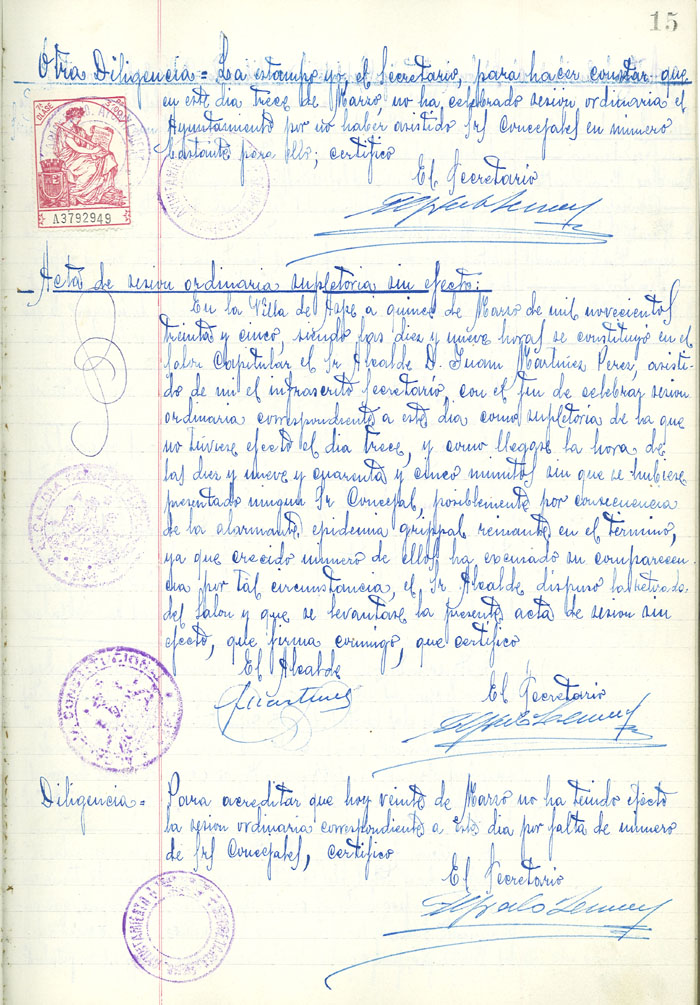 15
Otra Diligencia = La estampo yo, el Secretario, para hacer constar que
en este dia trece de Marzo, no ha celebrado sesion ordinaria el
Ayuntamiento por no haber asistido Srs Concejales en número
bastante para ello; certifico
El Secretario
A3792949
Acta de sesion ordinaria supletoria sin efecto:
En la Villa de Aspe, a quince de Marzo de mil novecientos
treinta y cinco, siendo las diez y nueve horas se constituyó en el
Salon Capitular el Sr Alcalde D. Juan Martinez Perez, asisti-
do de mi el infrascrito Secretario, con el fin de celebrar sesion
ordinaria correspondiente a este dia como supletoria de la que
no tuviese efecto el dia trece, y como llegase la hora de
las diez y nueve y cuarenta y cinco minutos sin que se hubiese
presentado ningun Sr Concejal, posiblemente por consecuencia
de la alarmante epidemia grippal reinante en el termino,
ya que crecido número de ellos ha excusado su comparecen-
cia por tal circunstancia, el Sr. Alcalde dispuso la retirada
del Salon y que se levantase la presente acta de sesion sin
efecto, que firma conmigo, que certifico
El Alcalde
JMartinez
El Secretario
Diligencia =
Para acreditar que hoy veinte de Marzo no ha tenido efecto
la sesion ordinaria correspondiente a este dia por falta de número
de Srs Concejales, certifico
El Secretario